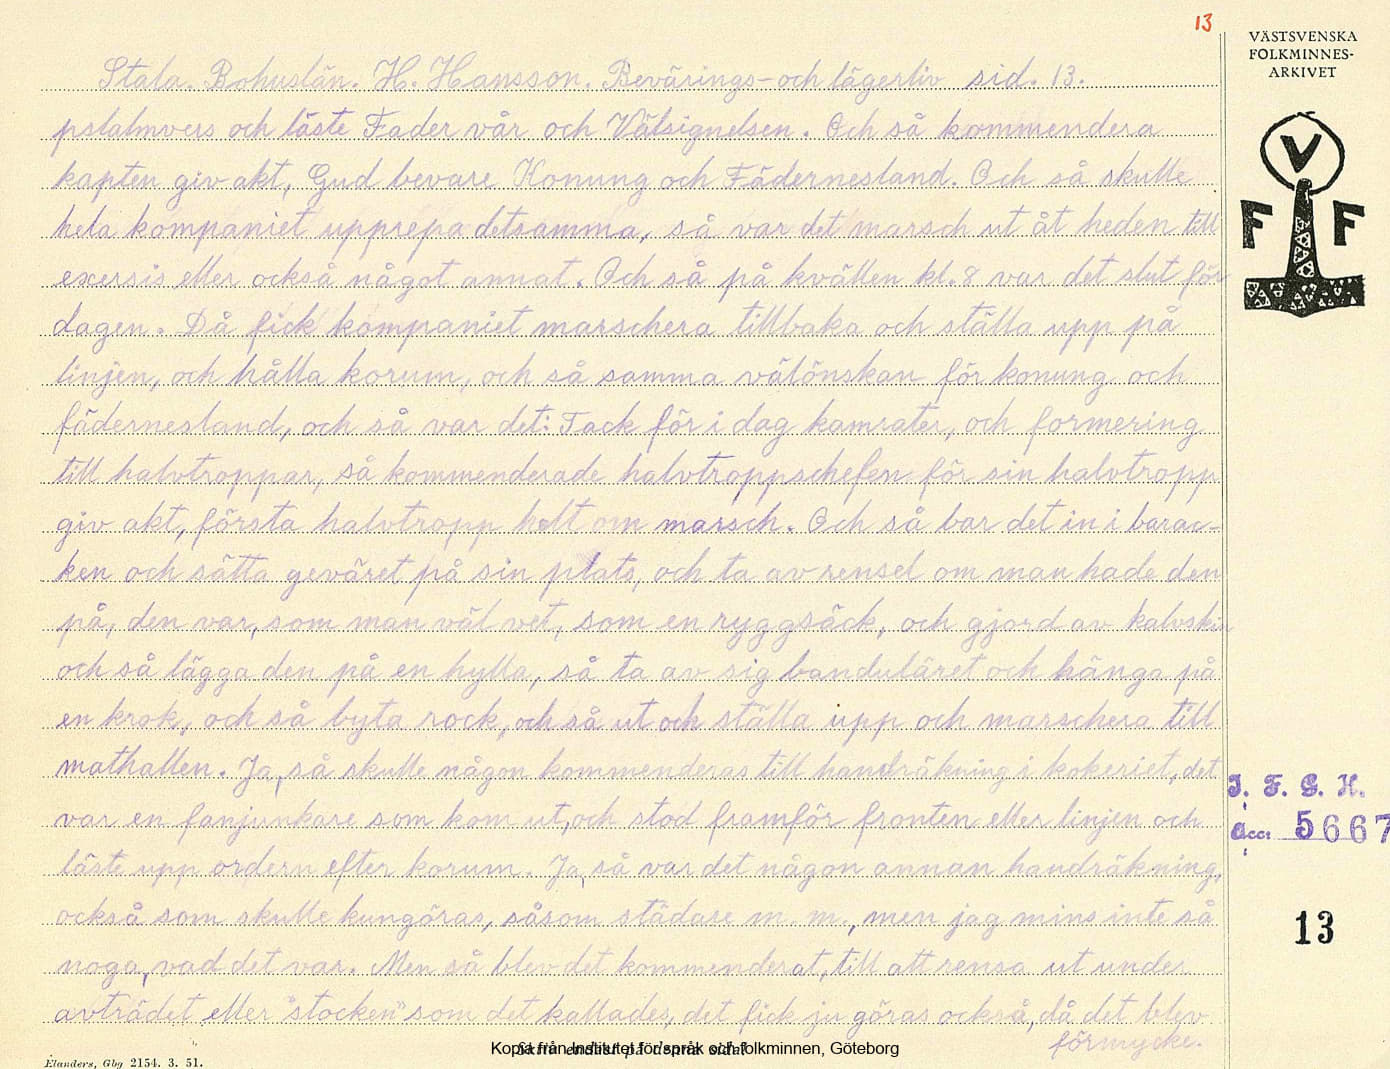 13
VÄSTSVENSKA
FOLKMINNES-
ARKIVET
V
F F
Stala. Bohuslän. H. Hansson. Bevärings- och lägerliv sid. 13.
pslalmvers och läste Fader vår och Välsignelsen. Och så kommendera
kapten giv akt, Gud bevare Konung och Fädernesland. Och så skulle
hela kompaniet upprepa detsamma, så var det marsch ut åt heden till
exersis eller också något annat. Och så på kvällen kl. 8 var det slut för
dagen. Då fick kompaniet marschera tillbaka och ställa upp på
linjen, och hålla korum, och så samma välönskan för konung och
fädernesland, och så var det: Tack för i dag kamrater, och formering
till halvtroppar, så kommenderade halvtroppschefen för sin halvtropp
giv akt, första halvtropp helt om marsch. Och så bar det in i barac-
ken och sätta geväret på sin plats, och ta av rensel om man hade den
på, den var, som man väl vet, som en ryggsäck, och gjord av kalvskin
och så lägga den på en hylla, så ta av sig banduläret och hänga på
en krok, och så byta rock, och så ut och ställa upp och marschera till
mathallen. Ja, så skulle någon kommenderas till handräkning i kokeriet, det
var en fanjunkare som kom ut, och stod framför fronten eller linjen och
läste upp ordern efter korum. Ja, så var det någon annan handräkning,
också som skulle kungöras, såsom städare m. m., men jag mins inte så
noga, vad det var. Men så blev det kommenderat, till att rensa ut under
avträdet eller "stocken" som det kallades, det fick ju göras också, då det blev
förmycke.
I. F. G. H.
acc: 5667
13
Skriv endast på denna sida!
Kopia från Institutet för språk och folkminnen, Göteborg
Elanders, Gbg 2154. 3. 51.